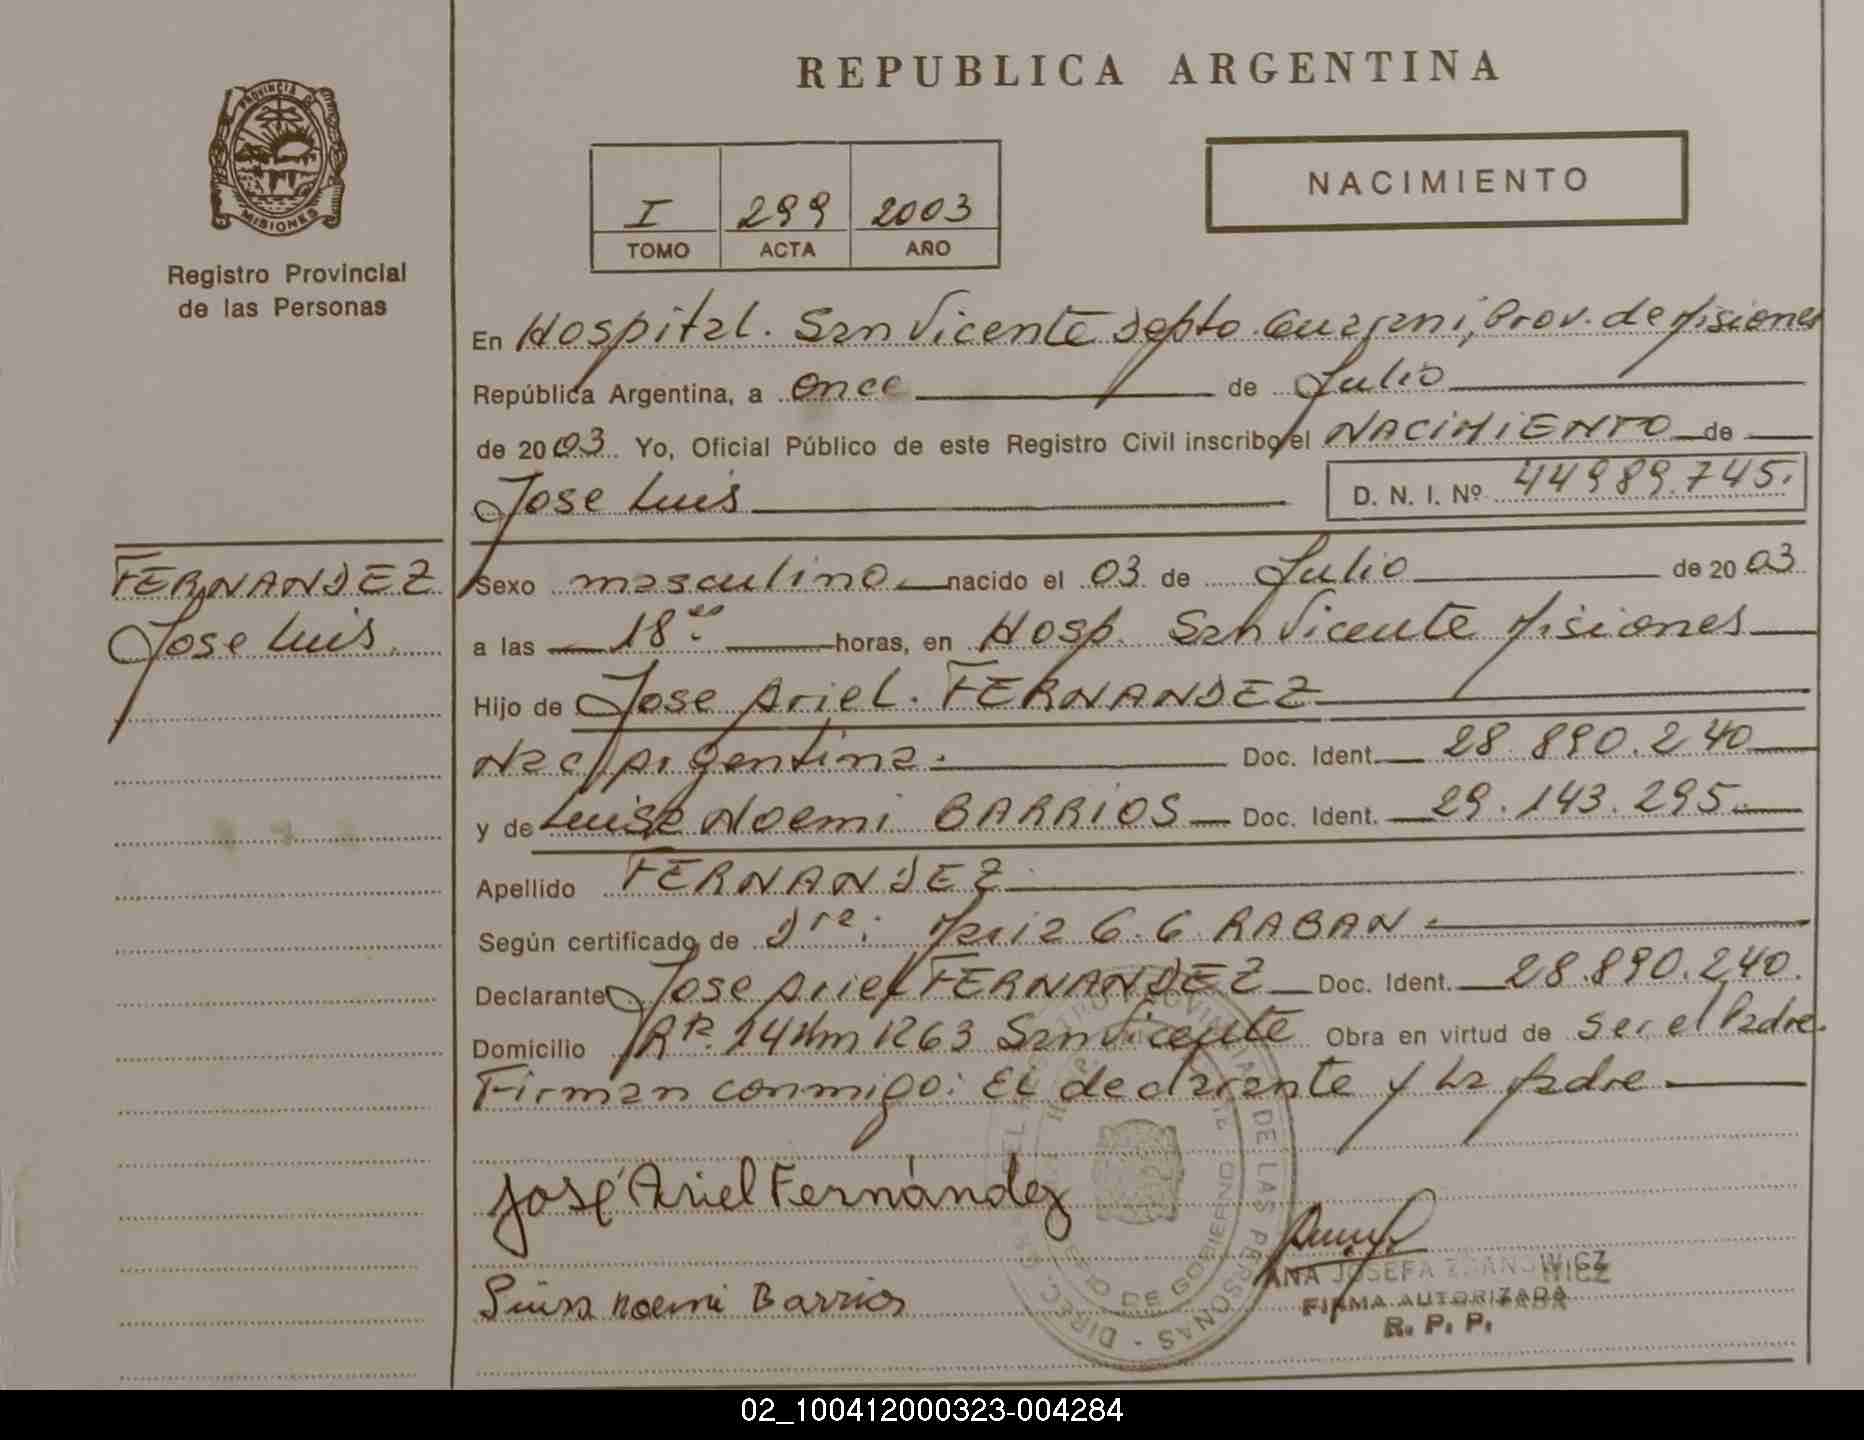 REPUBLICA ARGENTINA
PROVINCIA DE
MISIONES
Registro Provincial
de las Personas
I 299 2003
TOMO ACTA AÑO
NACIMIENTO
En Hospital. San Vicente Depto. Guarani, Prov. de Misiones
República Argentina, a once de Julio
de 2003. Yo, Oficial Público de este Registro Civil inscribo el NACIMIENTO de
Jose Luis D. N. I. Nº 44989.745.
FERNANDEZ
Jose Luis.
Sexo masculino nacido el 03 de Julio de 2003
a las 18 horas, en Hosp. San Vicente Misiones
Hijo de Jose Ariel. FERNANDEZ
Nac/Argentina. Doc. Ident. 28.890.240
y de Luisa Noemi BARRIOS Doc. Ident. 29.143.295.
Apellido FERNANDEZ
Según certificado de Dra: Maria G. G. RABAN
Declarante Jose Ariel FERNANDEZ Doc. Ident. 28.890.240.
Domicilio 14 Km 1263 San Vicente Obra en virtud de ser el Padre.
Firman conmigo: El declarante y La Madre
José Ariel Fernández
Luisa Noemi Barrios
DE LAS PERSONAS - DIREC.
DE GOBIERNO
ANA JOSEFA
FIRMA AUTORIZADA
R. P. P.
02_100412000323-004284